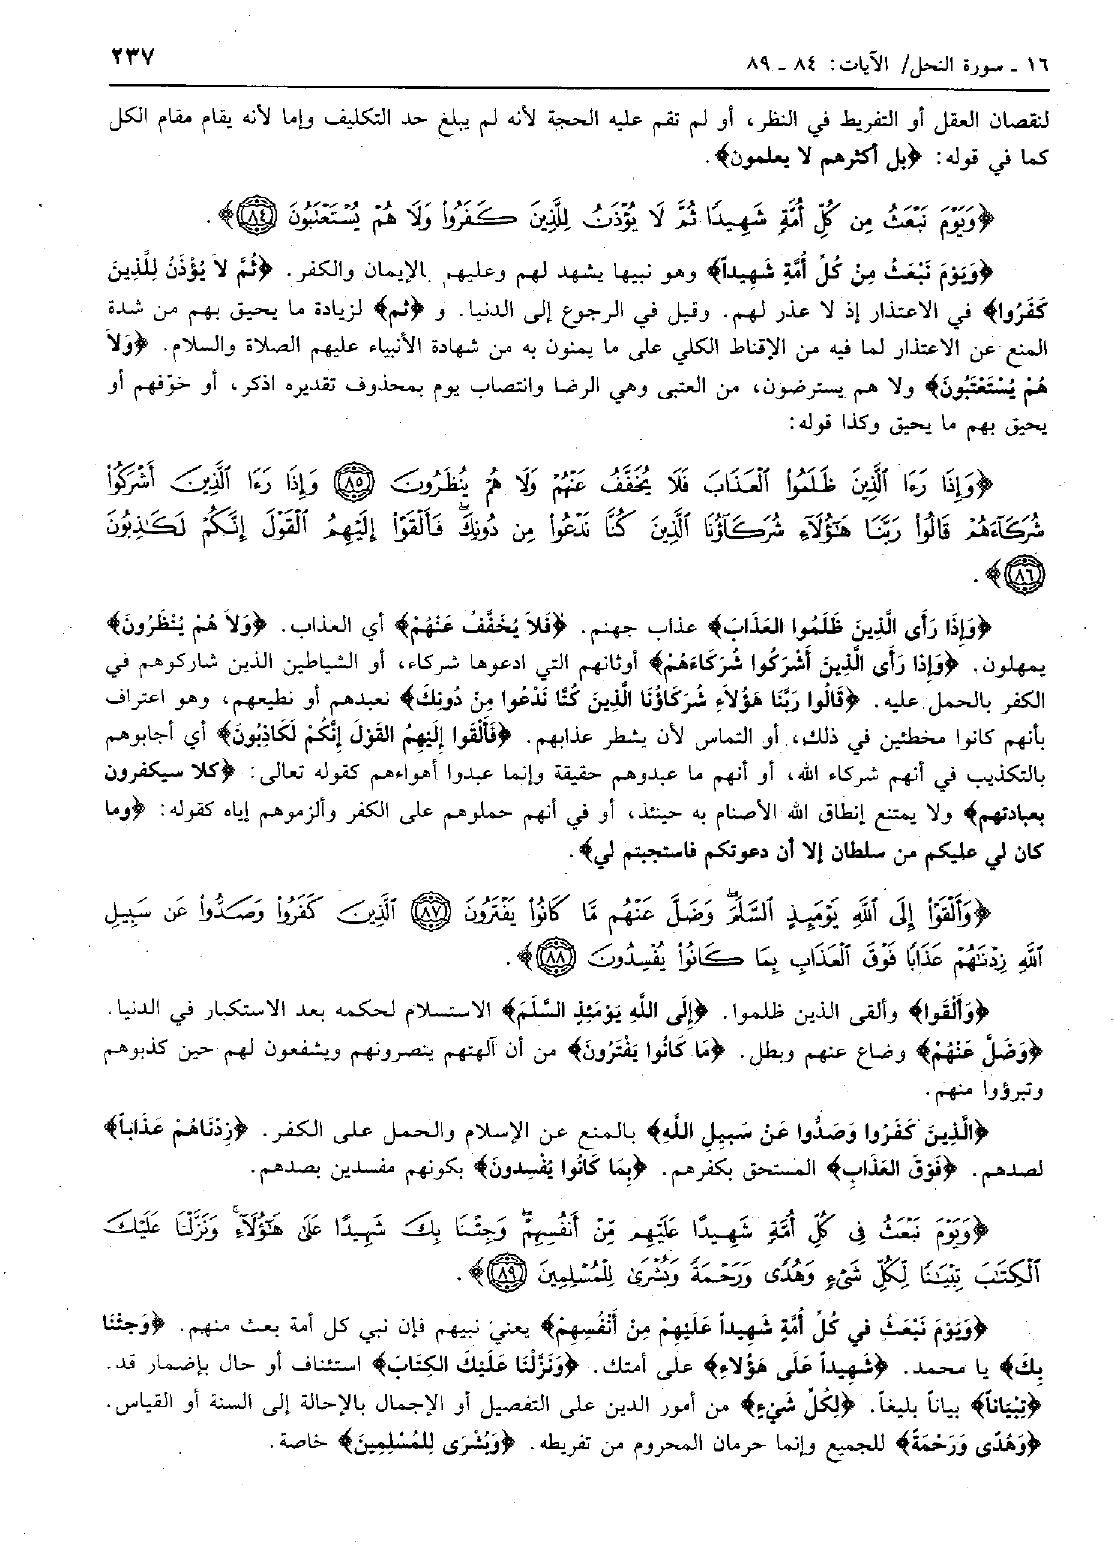 ١٦ ـ سورة النحل/ الآيات: ٨٤ ـ ٨٩
٢٣٧
لنقصان العقل أو التفريط في النظر، أو لم تقم عليه الحجة لأنه لم يبلغ حد التكليف وإما لأنه يقام مقام الكل
كما في قوله: ﴿بل أكثرهم لا يعلمون﴾.
﴿وَيَوْمَ نَبْعَثُ مِن كُلِّ أُمَّةٍ شَهِيدًا ثُمَّ لَا يُؤْذَنُ لِلَّذِينَ كَفَرُوا۟ وَلَا هُمْ يُسْتَعْتَبُونَ ٨٤﴾.
﴿وَيَوْمَ نَبْعَثُ مِنْ كُلِّ أُمَّةٍ شَهِيداً﴾ وهو نبيها يشهد لهم وعليهم بالإيمان والكفر. ﴿ثُمَّ لاَ يُؤْذَنُ لِلَّذِينَ
كَفَرُوا﴾ في الاعتذار إذ لا عذر لهم. وقيل في الرجوع إلى الدنيا. و ﴿ثم﴾ لزيادة ما يحيق بهم من شدة
المنع عن الاعتذار لما فيه من الإقناط الكلي على ما يمنون به من شهادة الأنبياء عليهم الصلاة والسلام. ﴿وَلاَ
هُمْ يُسْتَعْتَبُونَ﴾ ولا هم يسترضون، من العتبى وهي الرضا وانتصاب يوم بمحذوف تقديره اذكر، أو خوّفهم أو
يحيق بهم ما يحيق وكذا قوله:
﴿وَإِذَا رَءَا ٱلَّذِينَ ظَلَمُوا۟ ٱلْعَذَابَ فَلَا يُخَفَّفُ عَنْهُمْ وَلَا هُمْ يُنظَرُونَ ٨٥ وَإِذَا رَءَا ٱلَّذِينَ أَشْرَكُوا۟
شُرَكَآءَهُمْ قَالُوا۟ رَبَّنَا هَٰٓؤُلَآءِ شُرَكَآؤُنَا ٱلَّذِينَ كُنَّا نَدْعُوا۟ مِن دُونِكَ ۖ فَأَلْقَوْا۟ إِلَيْهِمُ ٱلْقَوْلَ إِنَّكُمْ لَكَٰذِبُونَ
٨٦﴾.
﴿وَإِذَا رَأَى الَّذِينَ ظَلَمُوا العَذَابَ﴾ عذاب جهنم. ﴿فَلاَ يُخَفَّفُ عَنْهُمْ﴾ أي العذاب. ﴿وَلاَ هُمْ يُنْظَرُونَ﴾
يمهلون. ﴿وَإِذَا رَأَى الَّذِينَ أَشْرَكُوا شُرَكَاءَهُمْ﴾ أوثانهم التي ادعوها شركاء، أو الشياطين الذين شاركوهم في
الكفر بالحمل عليه. ﴿قَالُوا رَبَّنَا هَؤُلاَءِ شُرَكَاؤُنَا الَّذِينَ كُنَّا نَدْعُوا مِنْ دُونِكَ﴾ نعبدهم أو نطيعهم، وهو اعتراف
بأنهم كانوا مخطئين في ذلك، أو التماس لأن يشطر عذابهم. ﴿فَأَلْقَوا إِلَيْهِمُ القَوْلَ إِنَّكُمْ لَكَاذِبُونَ﴾ أي أجابوهم
بالتكذيب في أنهم شركاء الله، أو أنهم ما عبدوهم حقيقة وإنما عبدوا أهواءهم كقوله تعالى: ﴿كلا سيكفرون
بعبادتهم﴾ ولا يمتنع إنطاق الله الأصنام به حينئذ، أو في أنهم حملوهم على الكفر وألزموهم إياه كقوله: ﴿وما
كان لي عليكم من سلطان إلا أن دعوتكم فاستجبتم لي﴾.
﴿وَأَلْقَوْا۟ إِلَى ٱللَّهِ يَوْمَئِذٍ ٱلسَّلَمَ ۖ وَضَلَّ عَنْهُم مَّا كَانُوا۟ يَفْتَرُونَ ٨٧ ٱلَّذِينَ كَفَرُوا۟ وَصَدُّوا۟ عَن سَبِيلِ
ٱللَّهِ زِدْنَٰهُمْ عَذَابًا فَوْقَ ٱلْعَذَابِ بِمَا كَانُوا۟ يُفْسِدُونَ ٨٨﴾.
﴿وَأَلْقَوا﴾ وألقى الذين ظلموا. ﴿إِلَى اللَّهِ يَوْمَئِذٍ السَّلَمَ﴾ الاستسلام لحكمه بعد الاستكبار في الدنيا.
﴿وَضَلَّ عَنْهُمْ﴾ وضاع عنهم وبطل. ﴿مَا كَانُوا يَفْتَرُونَ﴾ من أن آلهتهم ينصرونهم ويشفعون لهم حين كذبوهم
وتبرؤوا منهم.
﴿الَّذِينَ كَفَرُوا وَصَدُّوا عَنْ سَبِيلِ اللَّهِ﴾ بالمنع عن الإسلام والحمل على الكفر. ﴿زِدْنَاهُمْ عَذَاباً﴾
لصدهم. ﴿فَوْقَ العَذَابِ﴾ المستحق بكفرهم. ﴿بِمَا كَانُوا يُفْسِدونَ﴾ بكونهم مفسدين بصدهم.
﴿وَيَوْمَ نَبْعَثُ فِى كُلِّ أُمَّةٍ شَهِيدًا عَلَيْهِم مِّنْ أَنفُسِهِمْ ۖ وَجِئْنَا بِكَ شَهِيدًا عَلَىٰ هَٰٓؤُلَآءِ ۚ وَنَزَّلْنَا عَلَيْكَ
ٱلْكِتَٰبَ تِبْيَٰنًا لِّكُلِّ شَىْءٍ وَهُدًى وَرَحْمَةً وَبُشْرَىٰ لِلْمُسْلِمِينَ ٨٩﴾.
﴿وَيَوْمَ نَبْعَثُ في كُلِّ أُمَّةٍ شَهِيداً عَلَيْهِمْ مِنْ أَنْفُسِهِمْ﴾ يعني نبيهم فإن نبي كل أمة بعث منهم. ﴿وَجِئْنَا
بِكَ﴾ يا محمد. ﴿شَهِيداً عَلَى هَؤُلاءِ﴾ على أمتك. ﴿وَنَزَّلْنَا عَلَيْكَ الكِتَابَ﴾ استئناف أو حال بإضمار قد.
﴿تِبْيَاناً﴾ بياناً بليغاً. ﴿لِكُلِّ شَيْءٍ﴾ من أمور الدين على التفصيل أو الإجمال بالإحالة إلى السنة أو القياس.
﴿وَهُدًى وَرَحْمَةً﴾ للجميع وإنما حرمان المحروم من تفريطه. ﴿وَبُشْرَى لِلمُسْلِمِينَ﴾ خاصة.